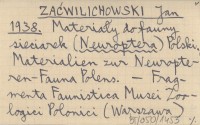 ZAĆWILICHOWSKI Jan
1938. Materiały do fauny
sieciarek (Neuroptera) Polski.
Materialien zur Neuropte-
ren-Fauna Polens. — Frag-
menta Faunistica Musei Zoo-
logici Polonici (Warszawa)